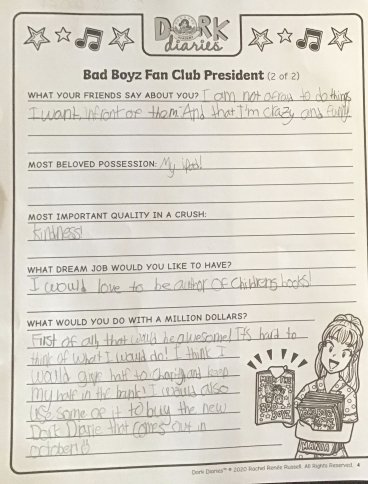 DORK
diaries
Bad Boyz Fan Club President (2 of 2)
WHAT YOUR FRIENDS SAY ABOUT YOU? I am not afraid to do things
I want infront of them. And that I'm crazy and funny
MOST BELOVED POSSESSION: My ipad!
MOST IMPORTANT QUALITY IN A CRUSH:
Kindness!
WHAT DREAM JOB WOULD YOU LIKE TO HAVE?
I would love to be author of childrens books!
WHAT WOULD YOU DO WITH A MILLION DOLLARS?
First of all, that would be awesome! It's hard to
think of what I would do! I think I
would give half to Charity and keep
my half in the bank! I would also
use some of it to buy the new
Dork Diarie that comes out in
october!
Dork Diaries™ © 2020 Rachel Renée Russell. All Rights Reserved. 4